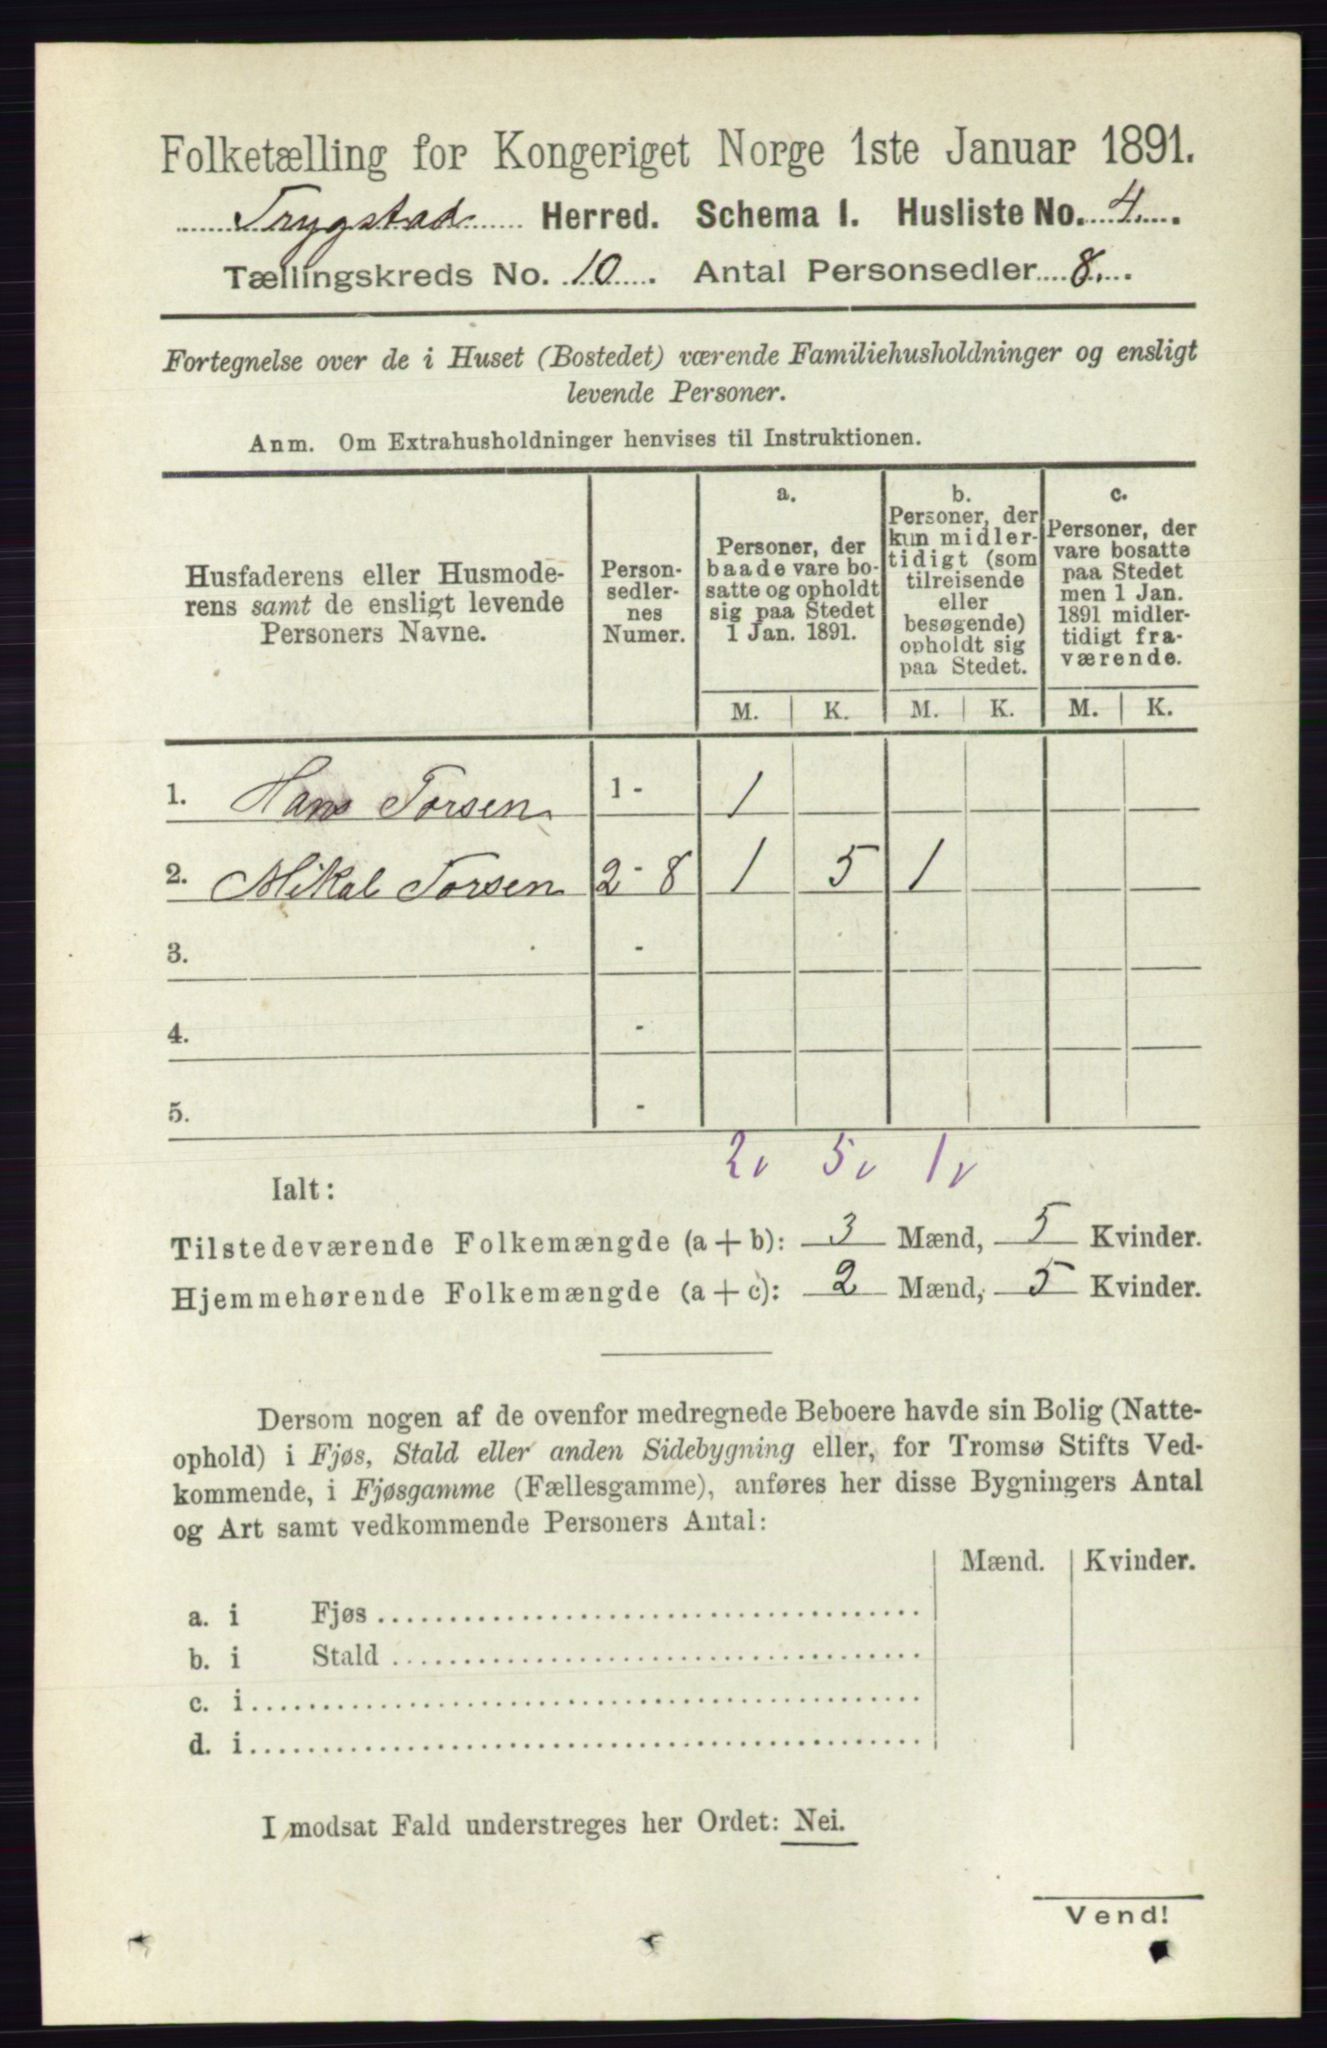 Folketælling for Kongeriget Norge 1ste Januar 1891.
Trygstad Herred. Schema I. Husliste No. 4.
Tællingskreds No. 10. Antal Personsedler 8.
Fortegnelse over de i Huset (Bostedet) værende Familiehusholdninger og ensligt
levende Personer.
Anm. Om Extrahusholdninger henvises til Instruktionen.
Husfaderens eller Husmode-
rens samt de ensligt levende
Personers Navne.
Person-
sedler-
nes
Numer.
a.
Personer, der
baade vare bo-
satte og opholdt
sig paa Stedet
1 Jan. 1891.
b.
Personer, der
kun midler-
tidigt (som
tilreisende
eller
besøgende)
opholdt sig
paa Stedet.
c.
Personer, der
vare bosatte
paa Stedet
men 1 Jan.
1891 midler-
tidigt fra-
værende.
M. K. M. K. M. K.
1. Hans Torsen 1 - 1
2. Mikal Torsen 2 - 8 1 5 1
3. -
4. -
5. -
2 5 1
Ialt:
Tilstedeværende Folkemængde (a + b): 3 Mænd, 5 Kvinder.
Hjemmehørende Folkemængde (a + c): 2 Mænd, 5 Kvinder.
Dersom nogen af de ovenfor medregnede Beboere havde sin Bolig (Natte-
ophold) i Fjøs, Stald eller anden Sidebygning eller, for Tromsø Stifts Ved-
kommende, i Fjøsgamme (Fællesgamme), anføres her disse Bygningers Antal
og Art samt vedkommende Personers Antal:
Mænd. Kvinder.
a. i Fjøs
b. i Stald
c. i
d. i
I modsat Fald understreges her Ordet: Nei.
Vend!